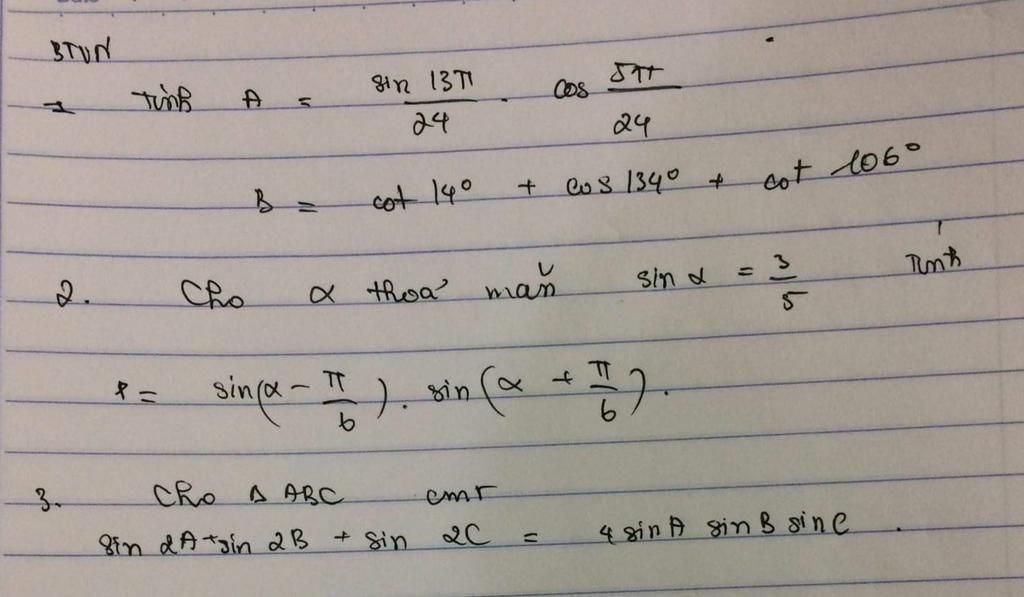 BTVN
1 Tính A = sin 13π/24 . cos 5π/24
B = cot 14° + cos 134° + cot 106°
2. Cho α thoả mãn sin α = 3/5 Tính
P = sin(α - π/6) . sin(α + π/6).
3. Cho Δ ABC cmr
sin 2A + sin 2B + sin 2C = 4 sinA sinB sinC .